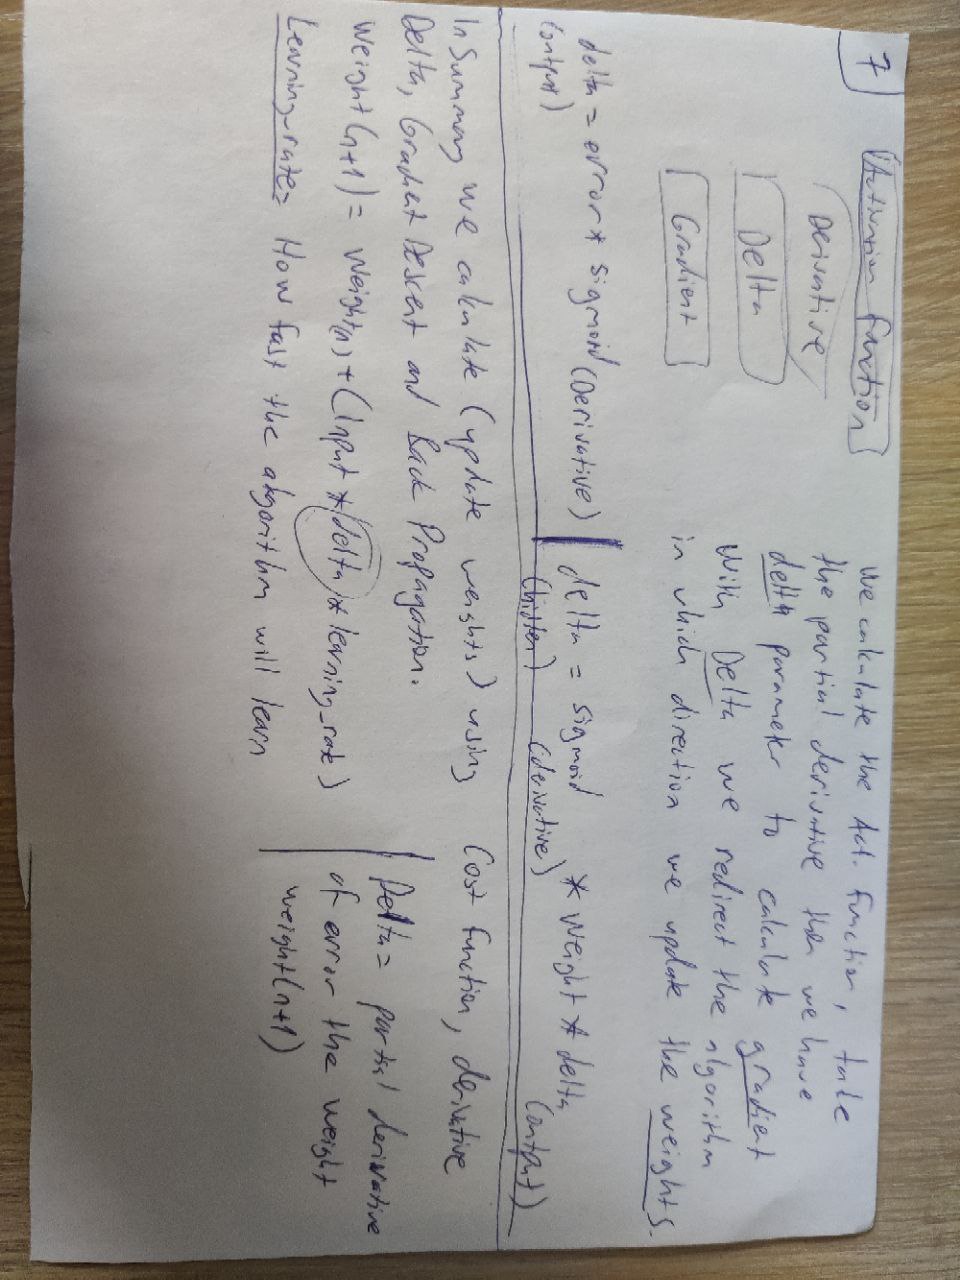 7
Activation function
Derivative
Delta
Gradient
We calculate the Act. Function, take
the partial derivative then we have
delta parameter to calculate gradient
With Delta we redirect the algorithm
in which direction we update the weights.
delta = error * sigmoid (Derivative)
(output)
delta = sigmoid * weight * delta
(hidden) (derivative) (output)
In Summary we calculate (update weights) using Cost function, derivative
Delta, Gradient Descent and Back Propagation.
Weight(n+1) = Weight(n) + (Input * delta * learning_rate)
Learning_rate = How fast the algorithm will learn
Delta = partial derivative
of error the weight
weight(n+1)